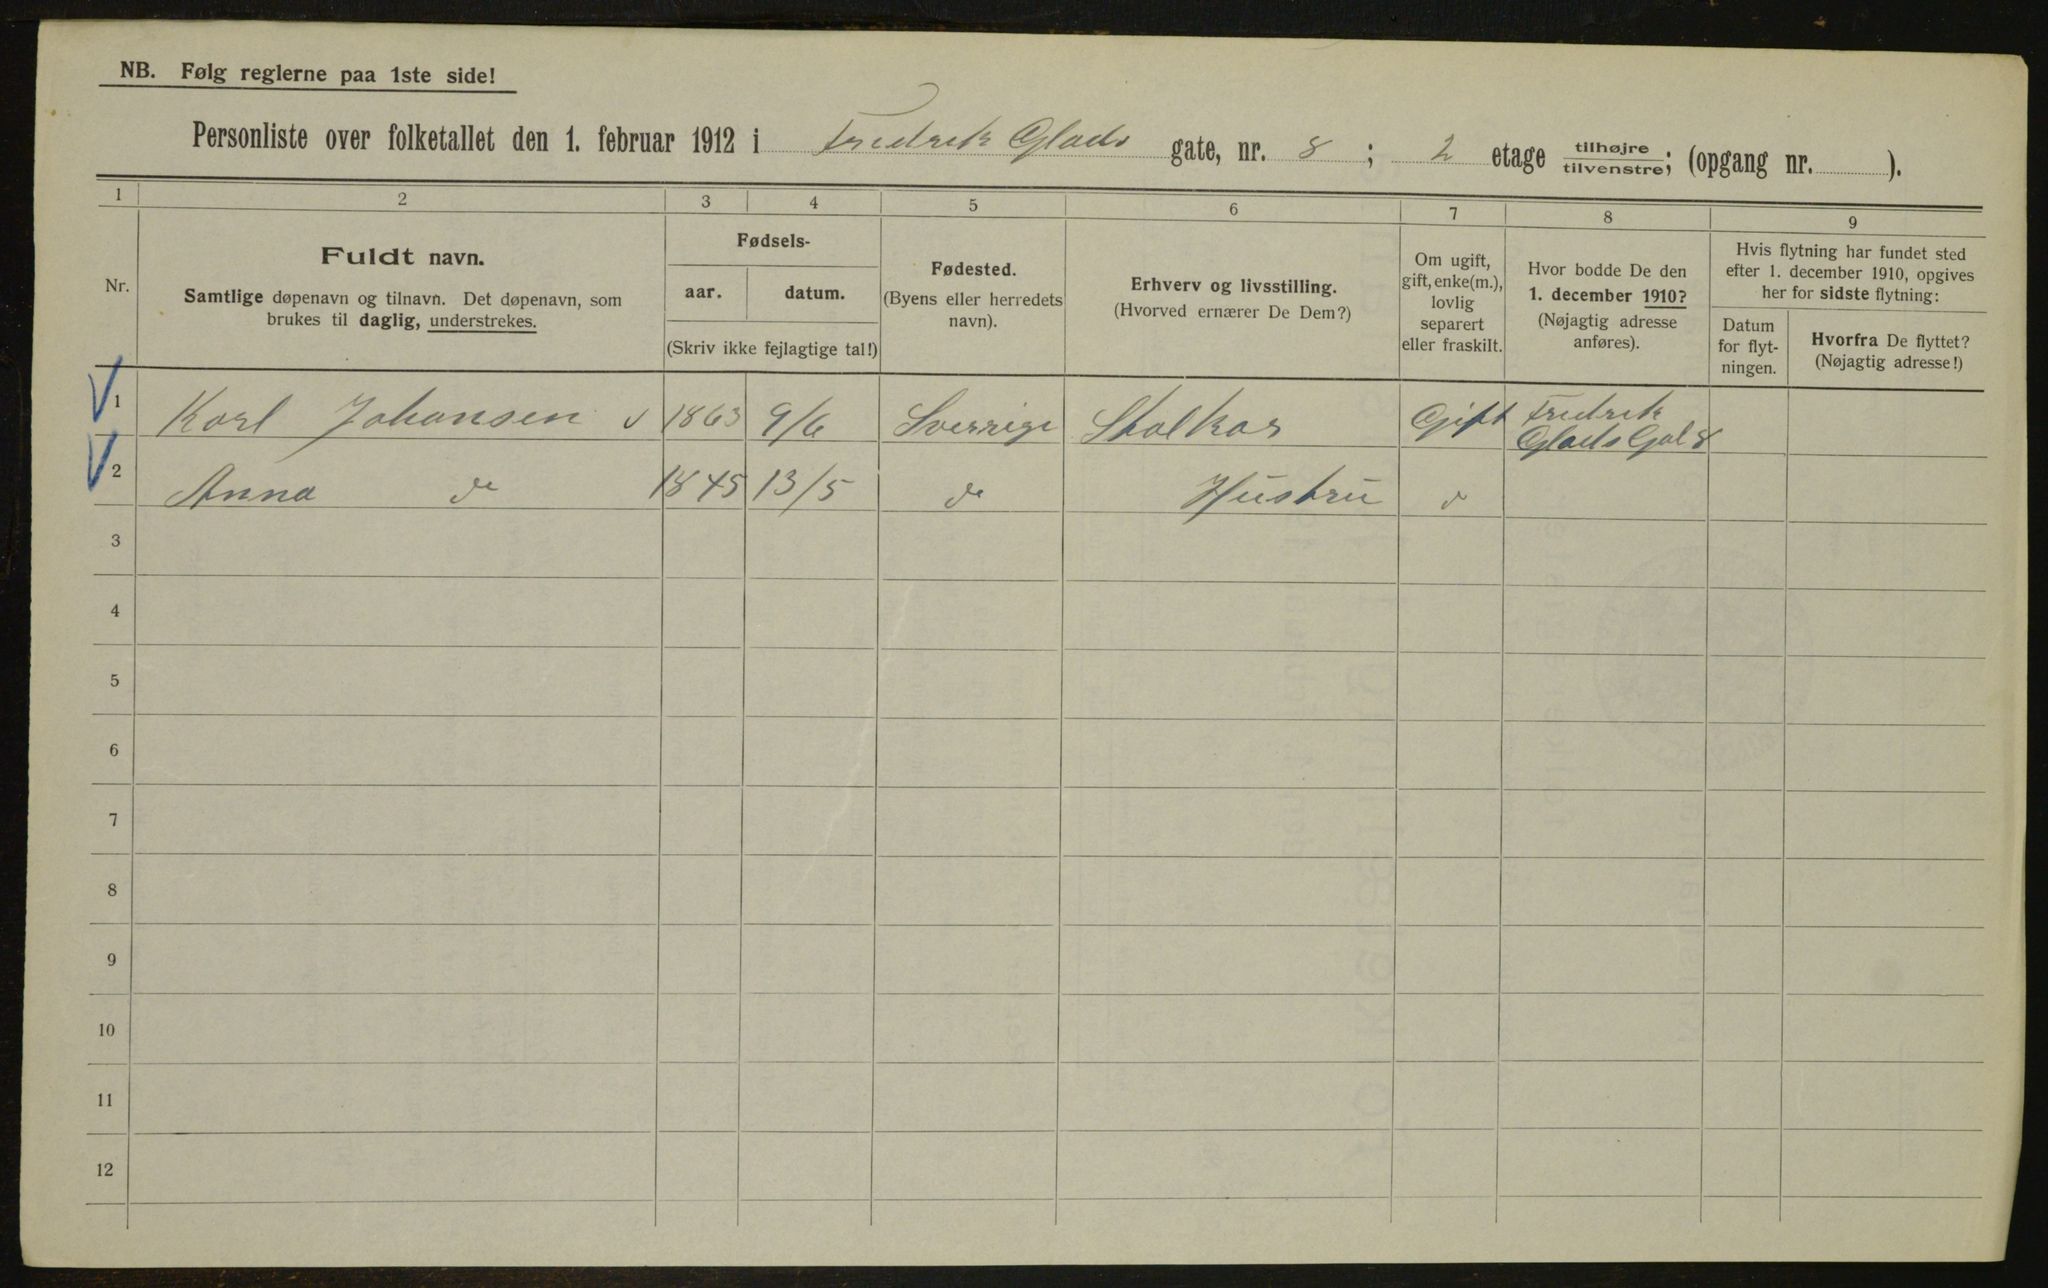 NB. Følg reglerne paa 1ste side!
Personliste over folketallet den 1. februar 1912 i Fredrik Glads gate, nr. 8 ; 2 etage tilhøjre/tilvenstre; (opgang nr. ).
1 2 3 4 5 6 7 8 9
Nr.
Fuldt navn.
Samtlige døpenavn og tilnavn. Det døpenavn, som
brukes til daglig, understrekes.
Fødsels-
aar. datum.
(Skriv ikke fejlagtige tal!)
Fødested.
(Byens eller herredets
navn).
Erhverv og livsstilling.
(Hvorved ernærer De Dem?)
Om ugift,
gift, enke(m.),
lovlig
separert
eller fraskilt.
Hvor bodde De den
1. december 1910?
(Nøjagtig adresse
anføres).
Hvis flytning har fundet sted
efter 1. december 1910, opgives
her for sidste flytning:
Datum
for flyt-
ningen.
Hvorfra De flyttet?
(Nøjagtig adresse!)
1 Karl Johansen 1863 9/6 Sverrige Gift Fredrik
Glads Gal 8
2 Anna do 1845 13/5 do Hustru do
3
4
5
6
7
8
9
10
11
12